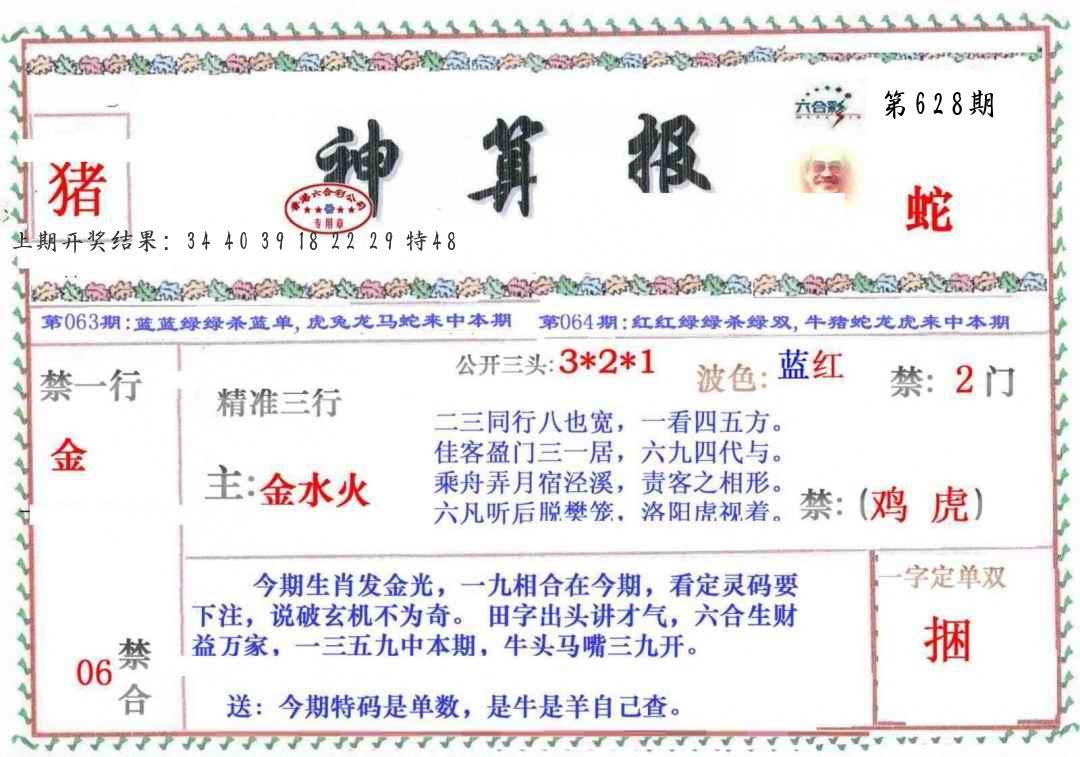 六合彩
第628期
神算报
香港六合彩公司
专用章
猪
蛇
上期开奖结果：34 40 39 18 22 29 特48
第063期:蓝蓝绿绿杀蓝单,虎兔龙马蛇来中本期 第064期:红红绿绿杀绿双,牛猪蛇龙虎来中本期
禁一行
金
精准三行
主:金水火
公开三头:3*2*1
波色:蓝红
禁: 2门
二三同行八也宽，一看四五方。
佳客盈门三一居，六九四代与。
乘舟弄月宿泾溪，责客之相形。
六凡听后脱樊笼，洛阳虎视着。
禁:(鸡 虎)
今期生肖发金光，一九相合在今期，看定灵码要
下注，说破玄机不为奇。田字出头讲才气，六合生财
益万家，一三五九中本期，牛头马嘴三九开。
送：今期特码是单数，是牛是羊自己查。
06禁合
一字定单双
捆